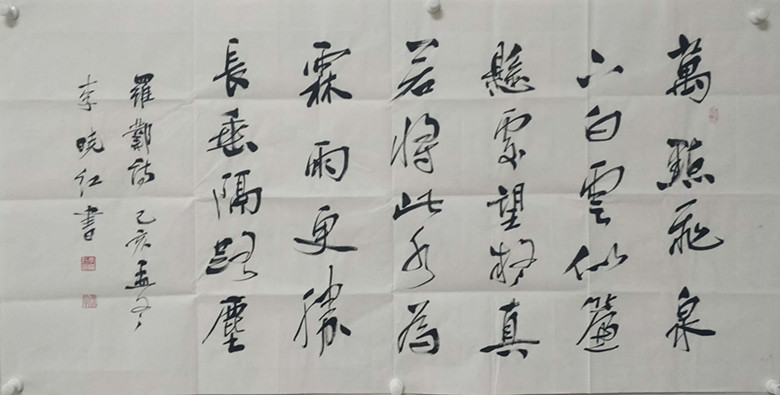 萬點飛泉
下白雲似簾
懸處望疑真
若將此水為
霖雨更勝
長垂隔路塵
羅鄴詩 己亥孟冬
李晓红書